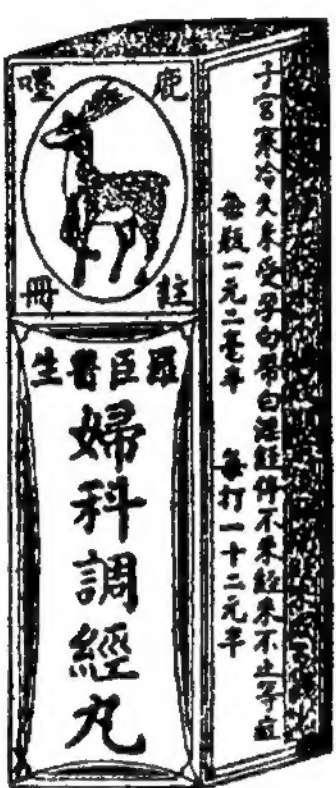 鹿嘜
註冊
羅臣醫生
婦科調經丸
子宮寒冷久未受孕白帶白淫經不來經來不止等症
每瓶一元二毫半 每打一十二元半